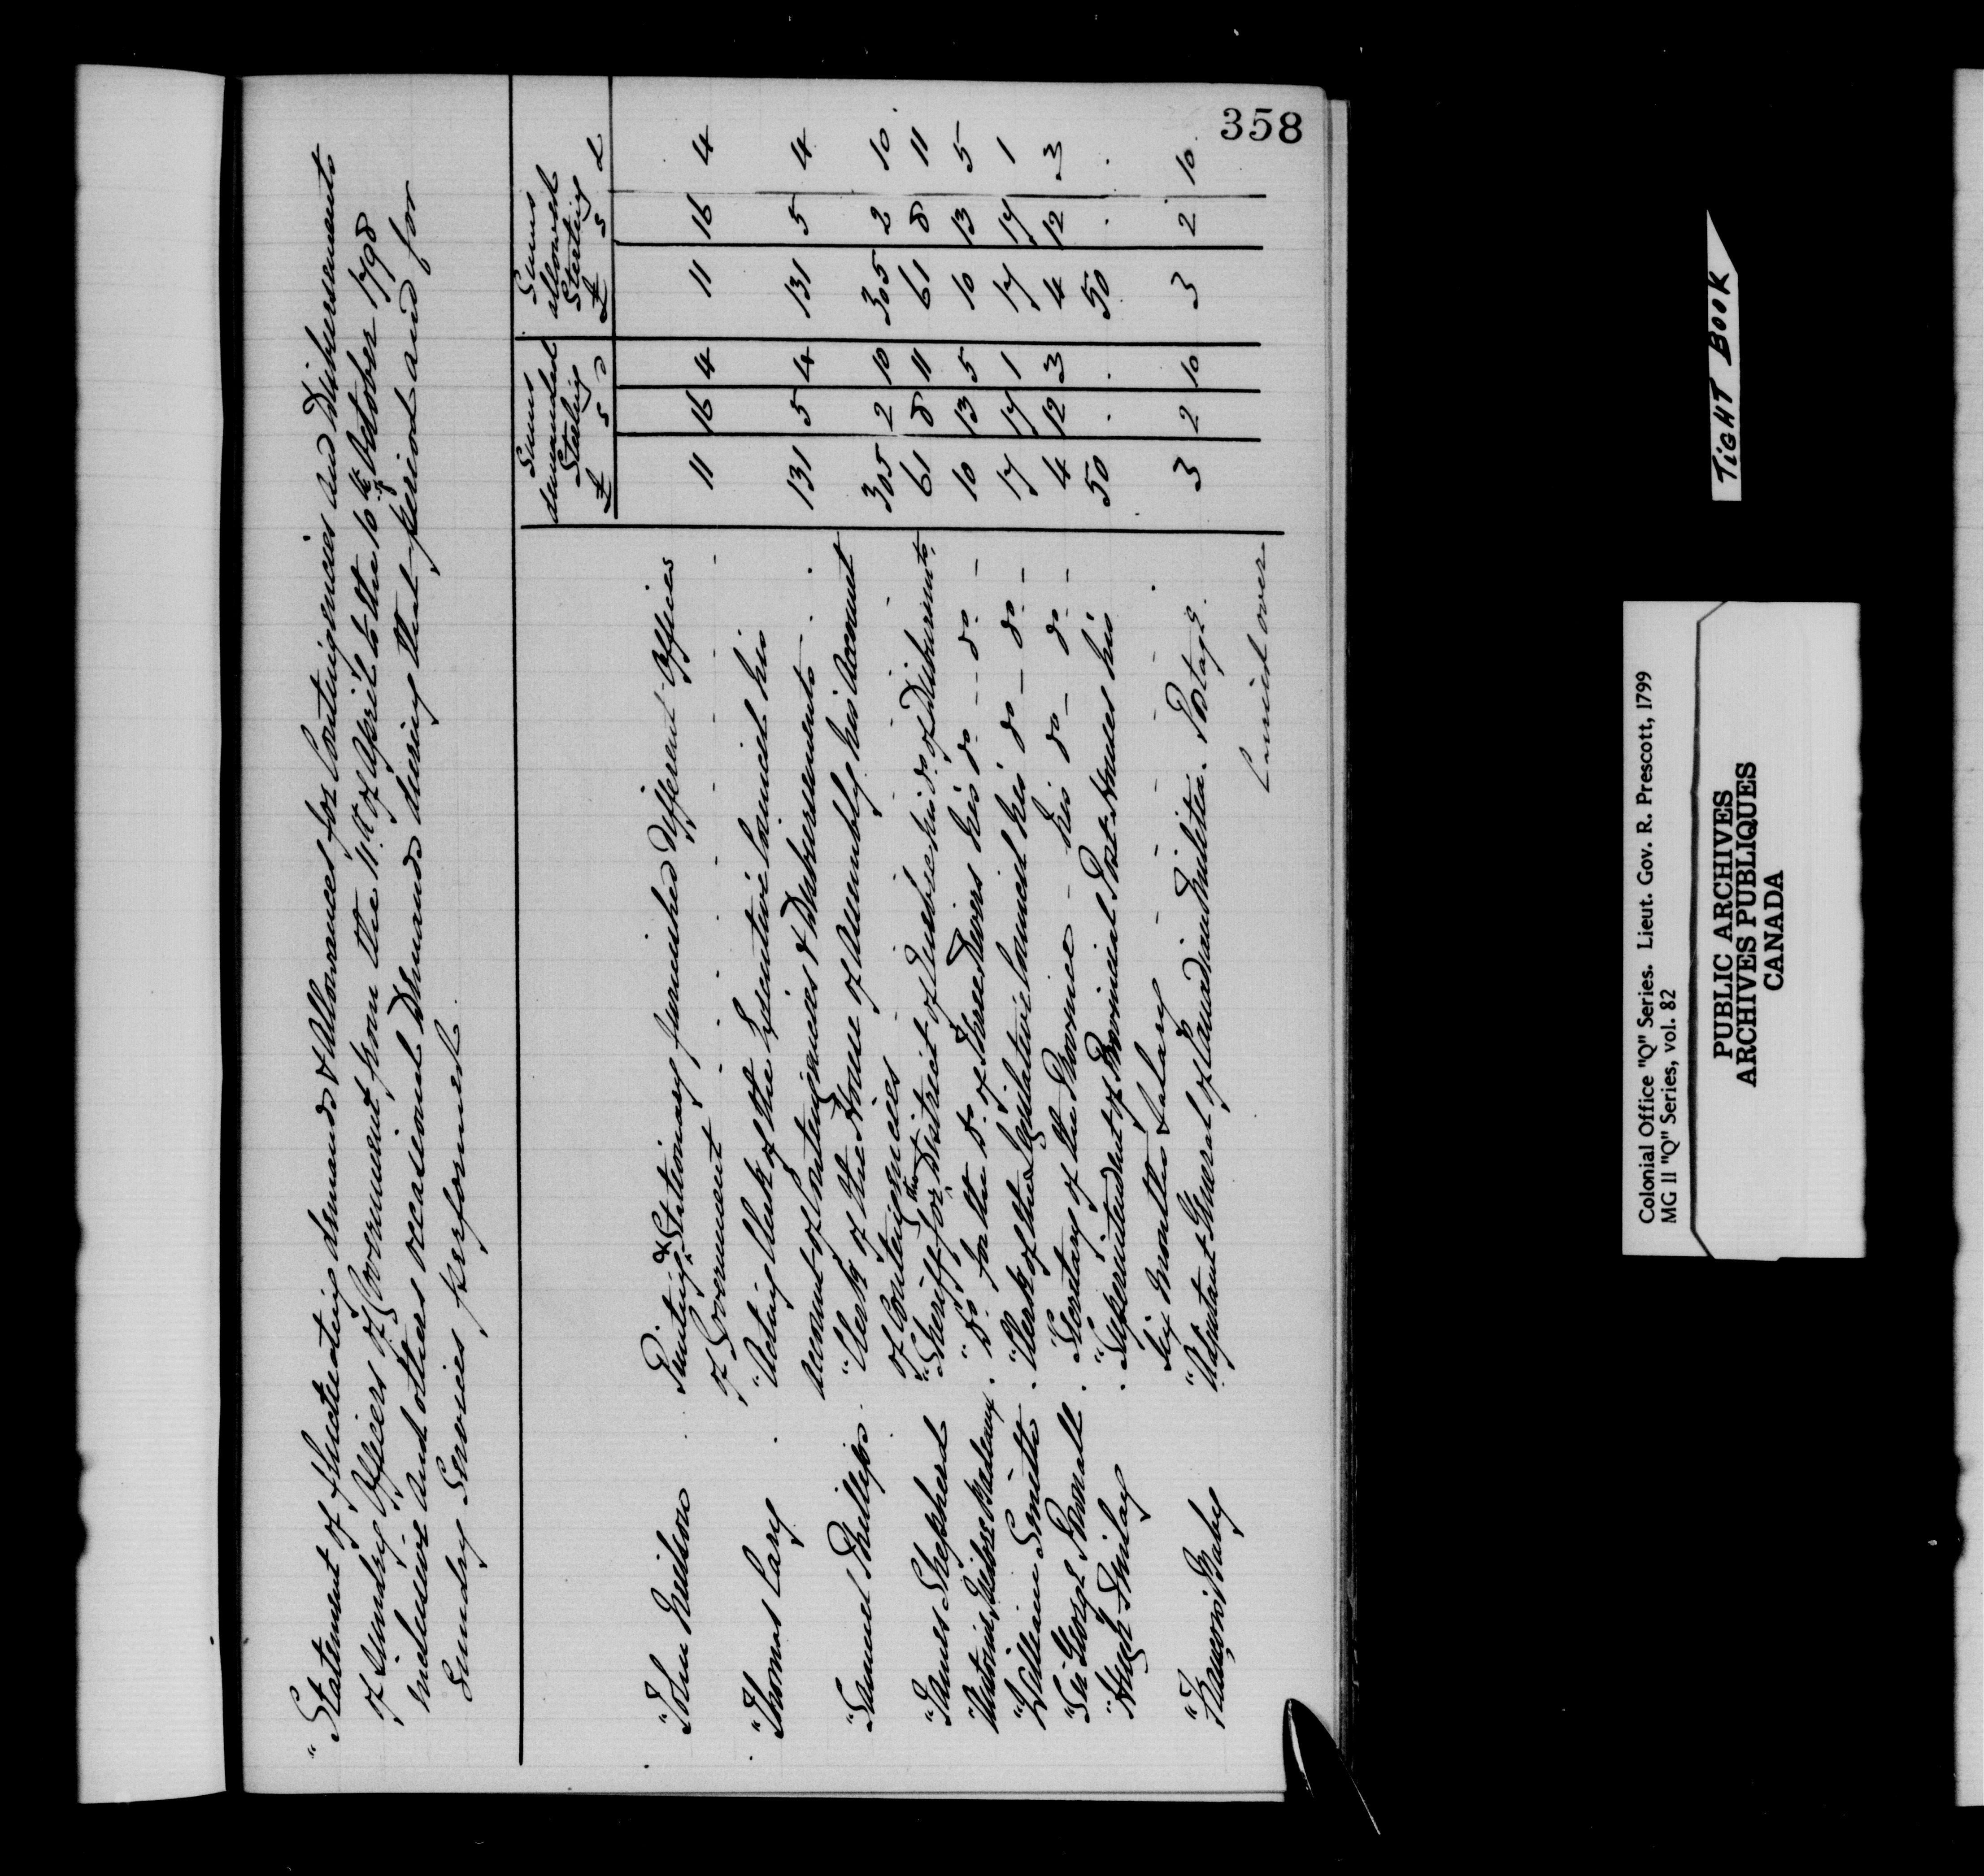 358
"Statement of fluctuating demands & Allowances for Contingencies and Disbursements
of sundry Officers of Government from the 11th of April to the 10th of October 1798
inclusive and others occasional Demands during that period and for
Sundry Services performed.
Sums demanded Sterling £ s d | Sums allowed Sterling £ s d
"John Neilson . Printing & Stationary furnished Different Offices
of Government - - - - 11 16 4 | 11 16 4
"Thomas Cary . "Acting Clerk of the Executive Council his
account of Contingencies & Disbursements . . 131 5 4 | 131 5 4
"Samuel Phillips . "Clerk of the House of Assembly his Account
of Contingencies - - - 305 2 10 | 305 2 10
"James Shepherd "Sheriff for the District of Quebec his do of Disbursemts. 61 8 11 | 61 8 11
"Antoine Isidore Badeaux . "Do. for the Do. of Three Rivers his do - - do - 10 13 5 | 10 13 5
"William Smith . "Clerk of the Legislative Council his do - do - 17 17 1 | 17 17 1
"Sir George Pownall . "Secretary of the Province - his do - do - 4 12 3 | 4 12 3
"Hugh Finlay . "Superintendent of Provincial Post Houses his
Six months Salary - - - - 50 . . | 50 . .
"François Baby "Adjutant General of Canadian Militia . Postage . 3 2 10 | 3 2 10
Carried over
TIGHT BOOK
Colonial Office "Q" Series. Lieut. Gov. R. Prescott, 1799
MG 11 "Q" Series, vol. 82
PUBLIC ARCHIVES
ARCHIVES PUBLIQUES
CANADA